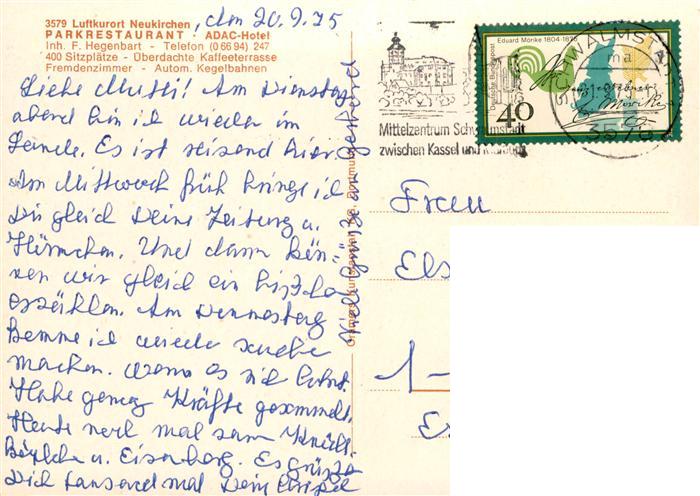 3579 Luftkurort Neukirchen
PARKRESTAURANT · ADAC-Hotel
Inh. F. Hegenbart - Telefon (0 66 94) 247
400 Sitzplätze - Überdachte Kaffeeterrasse
Fremdenzimmer - Autom. Kegelbahnen
, Am 20.9.75
Liebe Mutti! Am Dienstag
abend bin ich wieder im
Es ist reizend hier.
Am Mittwoch früh bringe ich
Dir gleich Deine Zeitung u.
Hörnchen. Und dann kön-
nen wir gleich ein bißchen
erzählen. Am Donnerstag
komme ich wieder
machen. wenn es sich lohnt.
Habe genug Kräfte gesammelt.
Heute noch mal zum Knüll-
u. Eisenberg. Es grüßt
Dich tausend mal Dein
Viele Grüße an Gerhard
Mittelzentrum Schwalmstadt
zwischen Kassel und Marburg
Eduard Mörike 1804-1875
Deutsche Bundespost
40
SCHWALMSTADT
ma
3578
Frau
Els
1-